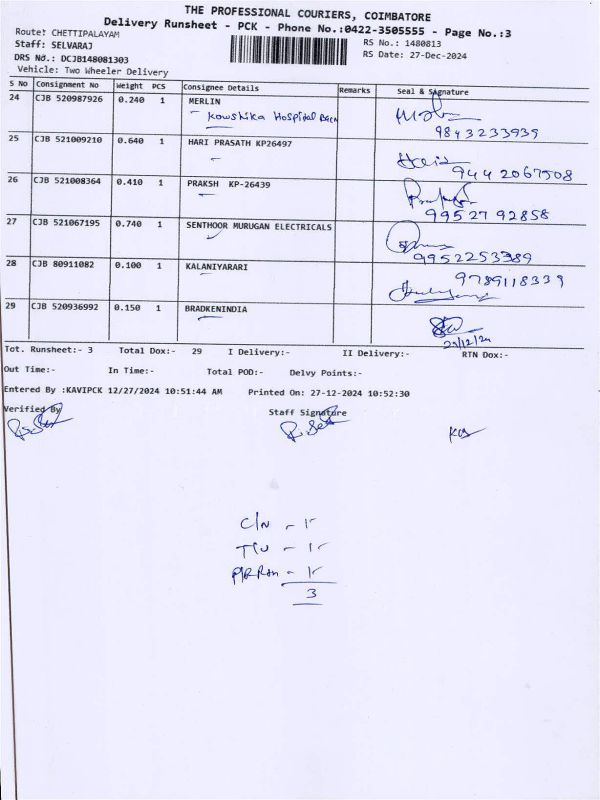 THE PROFESSIONAL COURIERS, COIMBATORE
Delivery Runsheet - PCK - Phone No.:0422-3505555 - Page No.:3
Route: CHETTIPALAYAM
RS No.: 1480813
Staff: SELVARAJ
RS Date: 27-Dec-2024
DRS No.: DCJB148081303
Vehicle: Two Wheeler Delivery
S No Consignment No Weight PCS Consignee Details Remarks Seal & Signature
24 CJB 520987926 0.240 1 MERLIN
Kowshika Hospital
9843233939
25 CJB 521009210 0.640 1 HARI PRASATH KP26497
9442067508
26 CJB 521008364 0.410 1 PRAKSH KP-26439
9952792858
27 CJB 521067195 0.740 1 SENTHOOR MURUGAN ELECTRICALS
9952253389
28 CJB 80911082 0.100 1 KALANIYARARI
9789118339
29 CJB 520936992 0.150 1 BRADKENINDIA
Tot. Runsheet:- 3 Total Dox:- 29 I Delivery:- II Delivery:- RTN Dox:-
Out Time:- In Time:- Total POD:- Delvy Points:-
Entered By :KAVIPCK 12/27/2024 10:51:44 AM Printed On: 27-12-2024 10:52:30
Verified By Staff Signature
C/N - 1
- 1
- 1
3